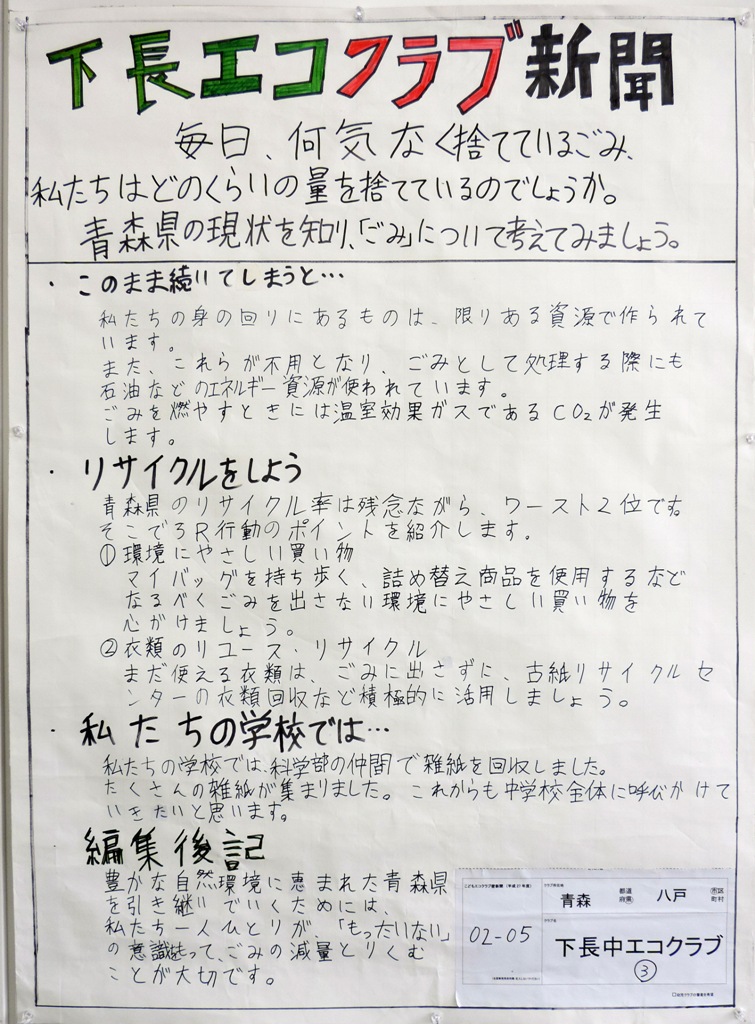 下長エコクラブ新聞
毎日、何気なく捨てているごみ、
私たちはどのくらいの量を捨てているのでしょうか。
青森県の現状を知り、「ごみ」について考えてみましょう。
・このまま続いてしまうと…
私たちの身の回りにあるものは、限りある資源で作られて
います。
また、これらが不用となり、ごみとして処理する際にも
石油などのエネルギー資源が使われています。
ごみを燃やすときには温室効果ガスであるCO₂が発生
します。
・リサイクルをしよう
青森県のリサイクル率は残念ながら、ワースト2位です。
そこで3R行動のポイントを紹介します。
①環境にやさしい買い物
マイバッグを持ち歩く、詰め替え商品を使用するなど
なるべくごみを出さない環境にやさしい買い物を
心がけましょう。
②衣類のリユース・リサイクル
まだ使える衣類は、ごみに出さずに、古紙リサイクルセ
ンターの衣類回収など積極的に活用しましょう。
・私たちの学校では…
私たちの学校では、科学部の仲間で雑紙を回収しました。
たくさんの雑紙が集まりました。これからも中学校全体に呼びかけて
いきたいと思います。
編集後記
豊かな自然環境に恵まれた青森県
を引き継いでいくためには、
私たち一人ひとりが、「もったいない」
の意識をもって、ごみの減量とりくむ
ことが大切です。
こどもエコクラブ壁新聞(平成27年度)
02-05
クラブ所在地
青森 都道府県 八戸 市区町村
クラブ名
下長中エコクラブ
③